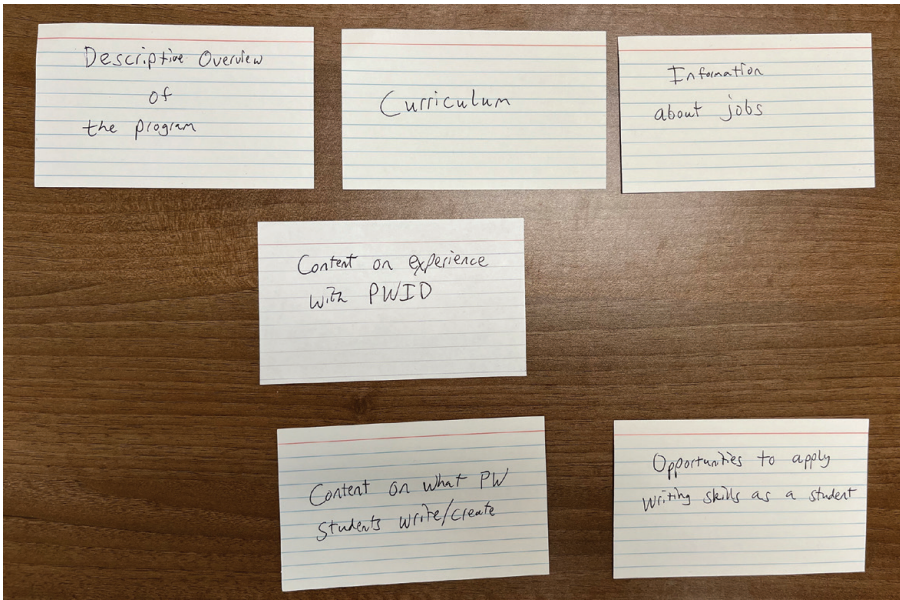 Descriptive Overview
of
the program
Curriculum
Information
about jobs
Content on experience
with PWID
Content on what PW
students write/create
Opportunities to apply
writing skills as a student